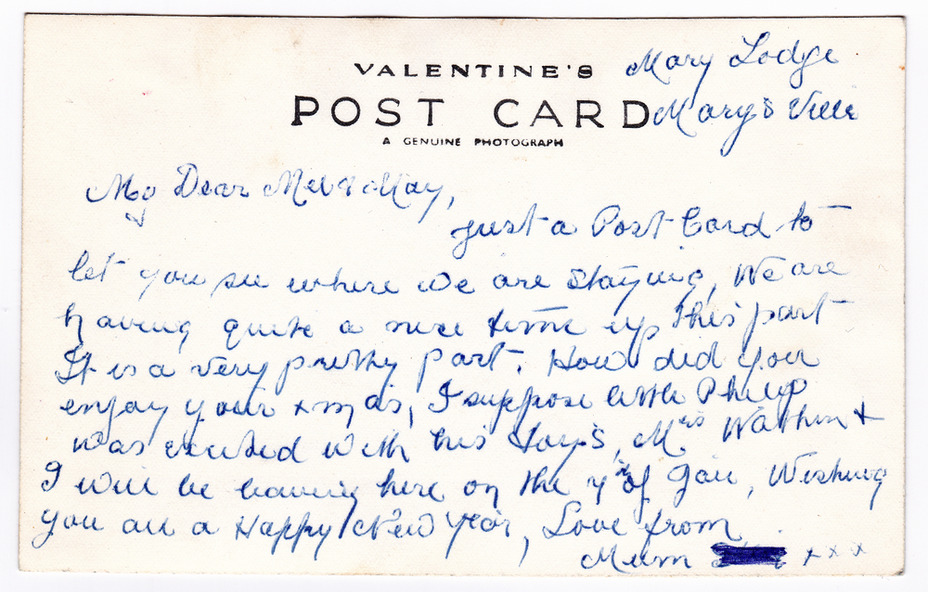 VALENTINE'S
POST CARD
A GENUINE PHOTOGRAPH
Mary Lodge
Mary's Ville
My Dear Mel & May,
just a Post Card to
let you see where we are staying, We are
having quite a nice time up this part
It is a very pretty part. How did you
enjoy your xmas, I suppose little Philip
was excited with his toys, Mrs &
I will be leaving here on the of Jan, Wishing
you all a Happy New Year, Love from
Mum x x x